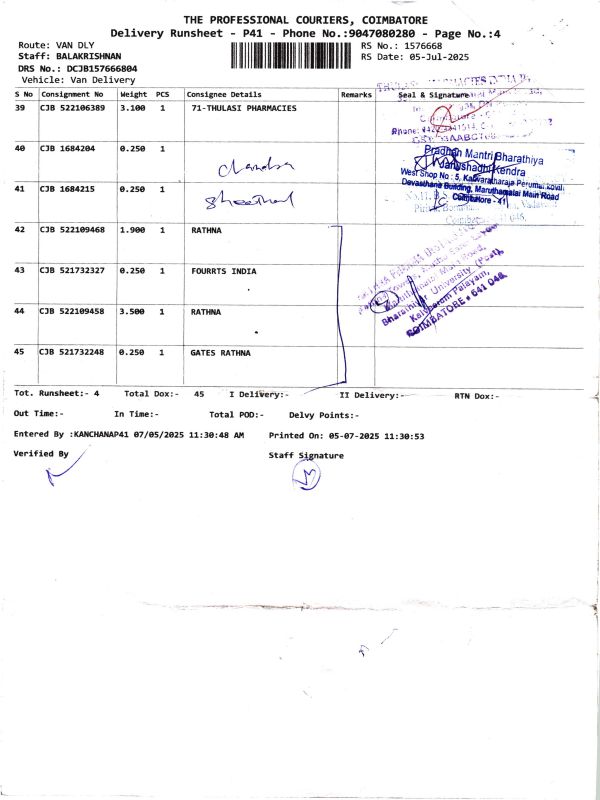 THE PROFESSIONAL COURIERS, COIMBATORE
Delivery Runsheet - P41 - Phone No.:9047080280 - Page No.:4
Route: VAN DLY RS No.: 1576668
Staff: BALAKRISHNAN RS Date: 05-Jul-2025
DRS No.: DCJB157666804
Vehicle: Van Delivery
S No Consignment No Weight PCS Consignee Details Remarks Seal & Signature
39 CJB 522106389 3.100 1 71-THULASI PHARMACIES
Coimbatore
Phone:
40 CJB 1684204 0.250 1
Chandra
Pradhan Mantri Bharathiya
Janushadhi Kendra
West Shop No : 5, Karivaratharaja Perumal kovil
Devasthana Building, Maruthamalai Main Road
Coimbatore - 41
41 CJB 1684215 0.250 1
Sheethal
42 CJB 522109468 1.900 1 RATHNA
43 CJB 521732327 0.250 1 FOURRTS INDIA
Bharathiyar University (Post),
Kalveeram Palayam,
COIMBATORE - 641 046.
44 CJB 522109458 3.500 1 RATHNA
45 CJB 521732248 0.250 1 GATES RATHNA
Tot. Runsheet:- 4 Total Dox:- 45 I Delivery:- II Delivery:- RTN Dox:-
Out Time:- In Time:- Total POD:- Delvy Points:-
Entered By :KANCHANAP41 07/05/2025 11:30:48 AM Printed On: 05-07-2025 11:30:53
Verified By Staff Signature